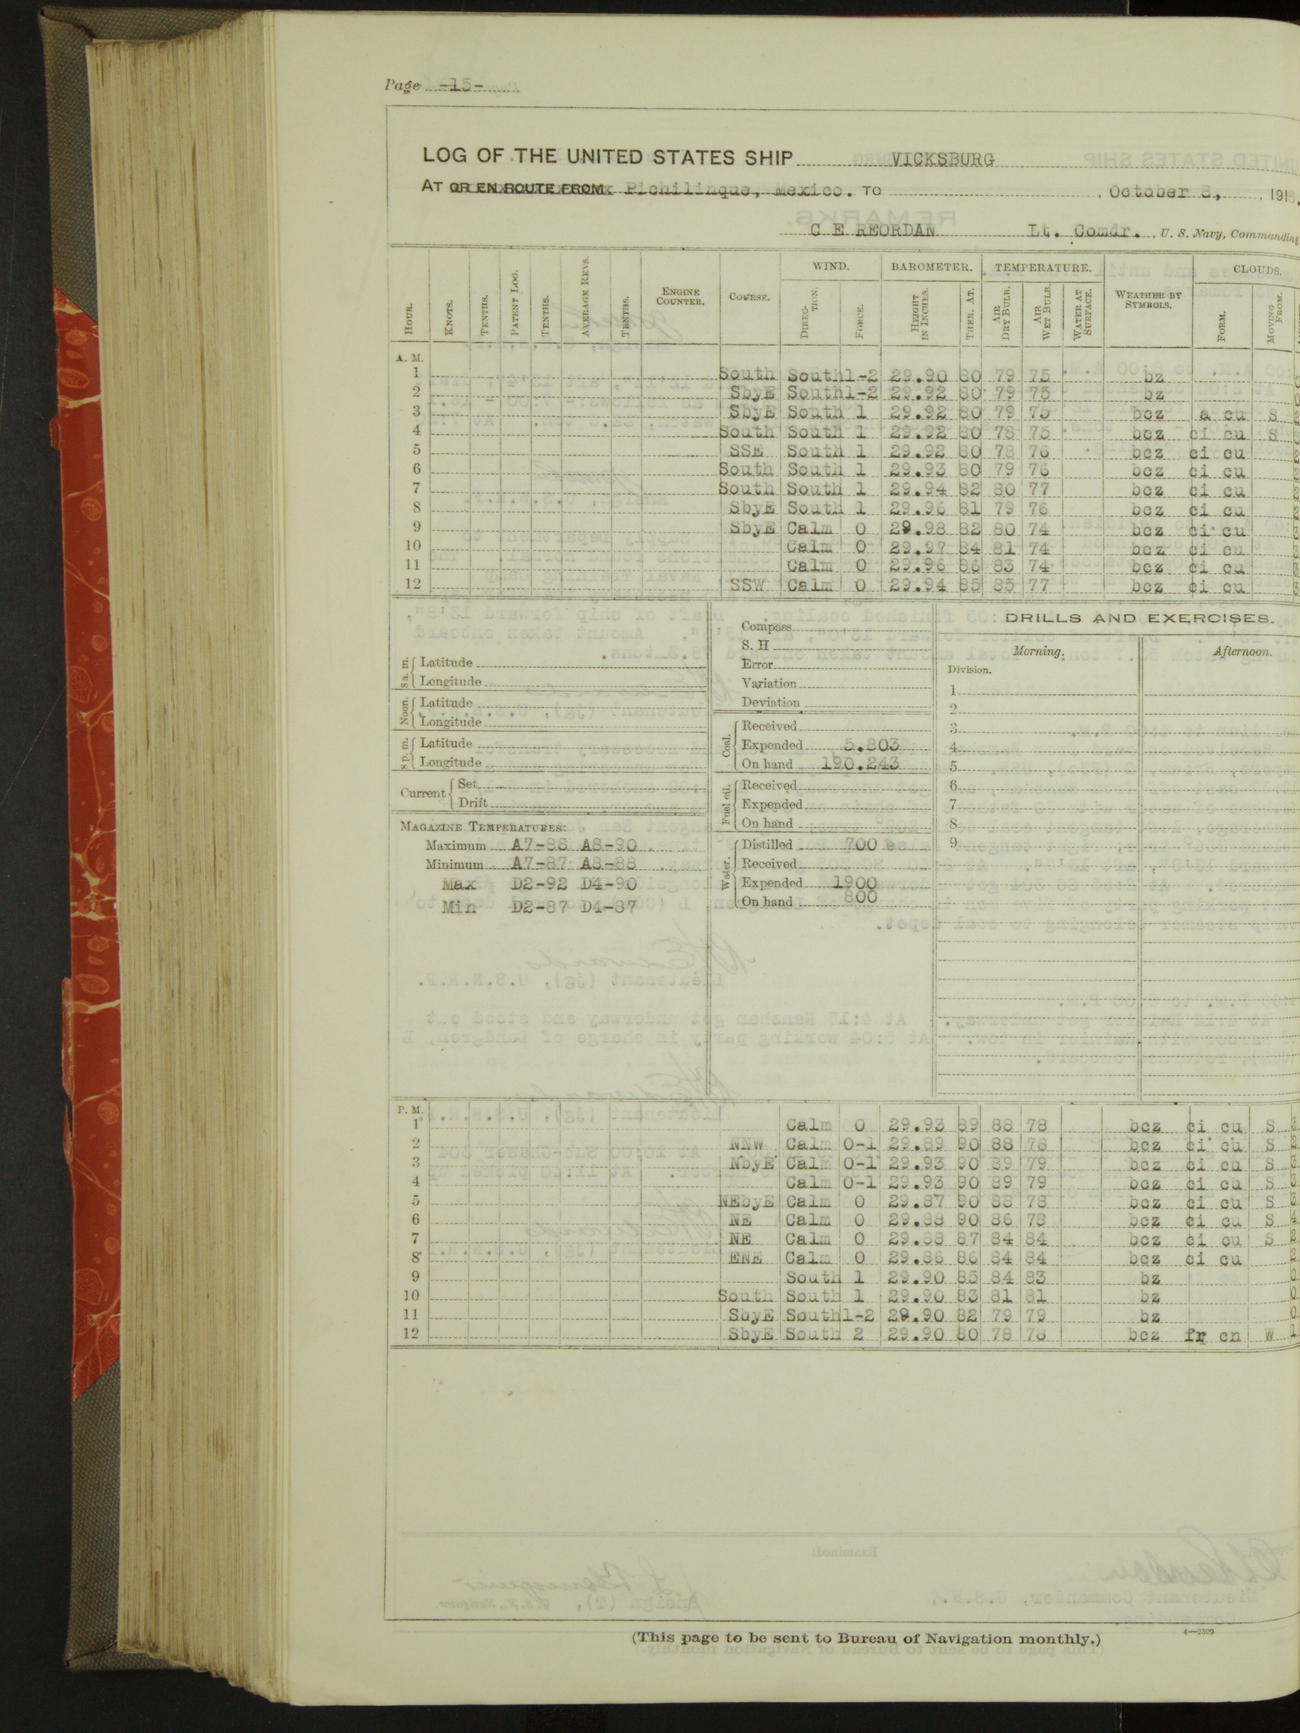 Page -15-
LOG OF THE UNITED STATES SHIP VICKSBURG
AT OR EN ROUTE FROM Pichilinque, Mexico. TO October 8, 191
C E REORDAN Lt. Comdr. U. S. Navy, Commanding
HOUR. KNOTS. TENTHS. PATENT LOG. TENTHS. AVERAGE REVS. TENTHS. ENGINE COUNTER. COURSE. WIND. DIRECTION. FORCE. BAROMETER. HEIGHT IN INCHES. THER. AT. TEMPERATURE. AIR DRY BULB. AIR WET BULB. WATER AT SURFACE. WEATHER BY SYMBOLS. CLOUDS. FORM. MOVING FROM.
A. M.
1 South South 1-2 29.90 80 79 75 bz
2 SbyE South 1-2 29.92 80 79 75 bz
3 SbyE South 1 29.92 80 79 75 bcz a cu S
4 South South 1 29.92 80 78 75 bcz ci cu S
5 SSE South 1 29.92 80 78 76 bcz ci cu
6 South South 1 29.93 80 79 76 bcz ci cu
7 South South 1 29.94 82 80 77 bcz ci cu
8 SbyE South 1 29.96 81 79 76 bcz ci cu
9 SbyE Calm 0 29.98 82 80 74 bcz ci cu
10 Calm 0 29.97 84 81 74 bcz ci cu
11 Calm 0 29.96 86 83 74 bcz ci cu
12 SSW Calm 0 29.94 85 85 77 bcz ci cu
8 a. m. Latitude
Longitude
Noon. Latitude
Longitude
8 p. m. Latitude
Longitude
Current Set
Drift
MAGAZINE TEMPERATURES:
Maximum A7-88 A8-90
Minimum A7-87 A8-88
Max D2-92 D4-90
Min D2-87 D4-87
Compass
S. H
Error
Variation
Deviation
Coal. Received
Expended 5.803
On hand 190.243
Fuel oil. Received
Expended
On hand
Water. Distilled 700
Received
Expended 1900
On hand 800
DRILLS AND EXERCISES.
Morning. Afternoon.
Division.
1
2
3
4
5
6
7
8
9
P. M.
1 Calm 0 29.93 89 88 78 bcz ci cu S
2 NNW Calm 0-1 29.89 90 88 78 bcz ci cu S
3 NbyE Calm 0-1 29.93 90 89 79 bcz ci cu S
4 Calm 0-1 29.93 90 89 79 bcz ci cu S
5 NEbyE Calm 0 29.87 90 88 78 bcz ci cu S
6 NE Calm 0 29.88 90 86 78 bcz ci cu S
7 NE Calm 0 29.88 87 84 84 bcz ci cu S
8 ENE Calm 0 29.86 86 84 84 bcz ci cu
9 South 1 29.90 85 84 83 bz
10 South South 1 29.90 83 81 81 bz
11 SbyE South 1-2 29.90 82 79 79 bz
12 SbyE South 2 29.90 80 78 78 bcz fr cn W
(This page to be sent to Bureau of Navigation monthly.)